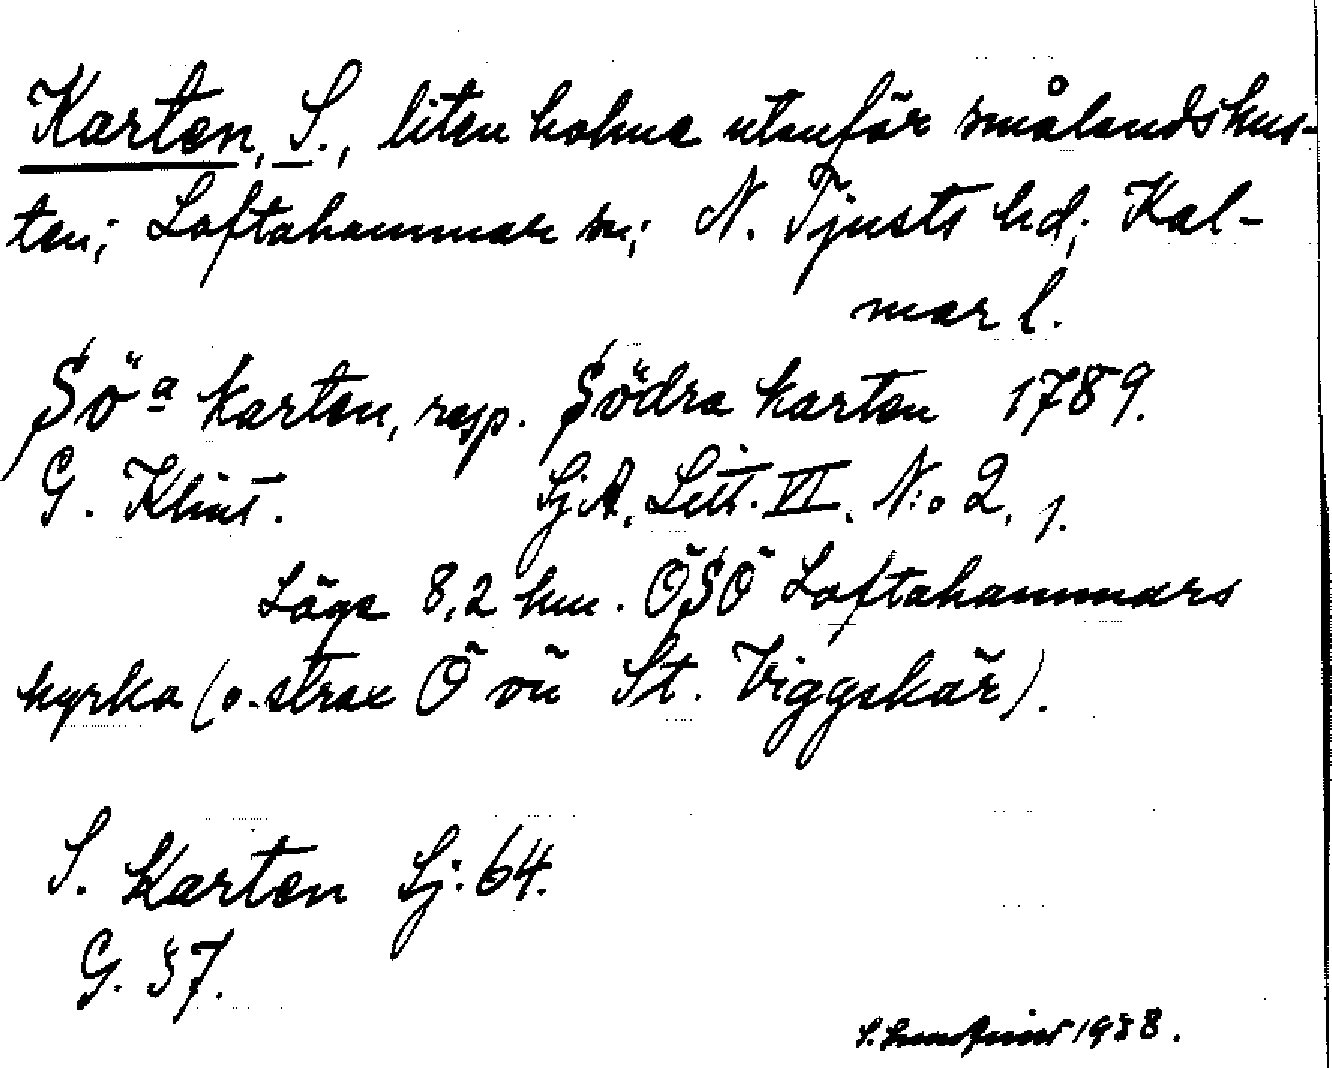 Karten, S., liten holme utanför smålandskus-
ten; Loftahammar sn; N. Tjusts hd; Kal-
mar l.
Söa karten, resp. Södra karten 1789.
G. Klint. SjA. Litt. VI. N:o 2, 1.
Läge 8,2 km. ÖSÖ Loftahammars
kyrka (o. strax Ö ö St. Viggskär).
S. Karten Sj. 64.
G. 37.
S. 1938.